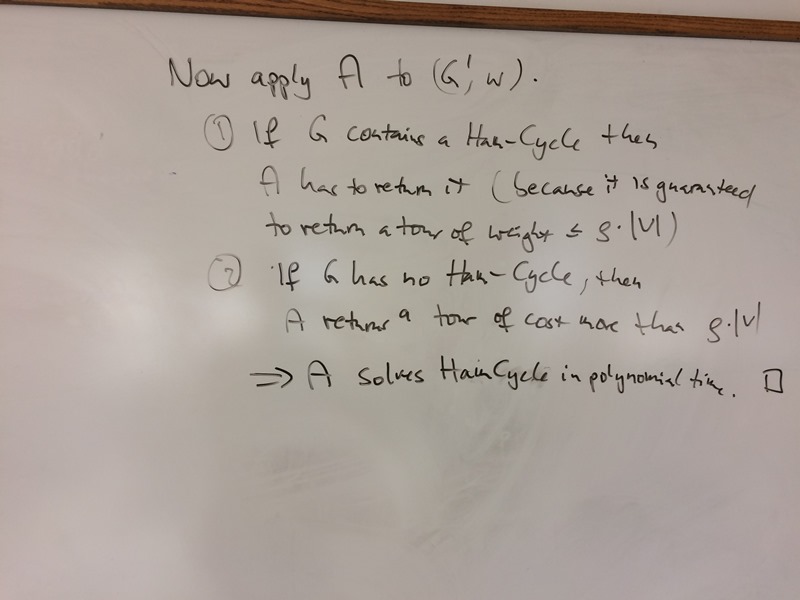 Now apply A to (G', w).
① If G contains a Ham-Cycle then
A has to return it (because it is guaranteed
to return a tour of weight ≤ ρ·|V|)
② If G has no Ham-Cycle, then
A returns a tour of cost more than ρ·|V|
⇒ A solves HamCycle in polynomial time. □